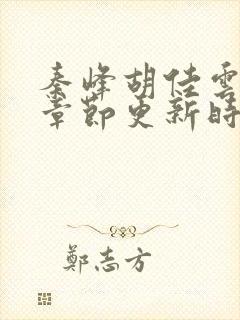 秦峰胡佳雲
章節更新時
鄭志方